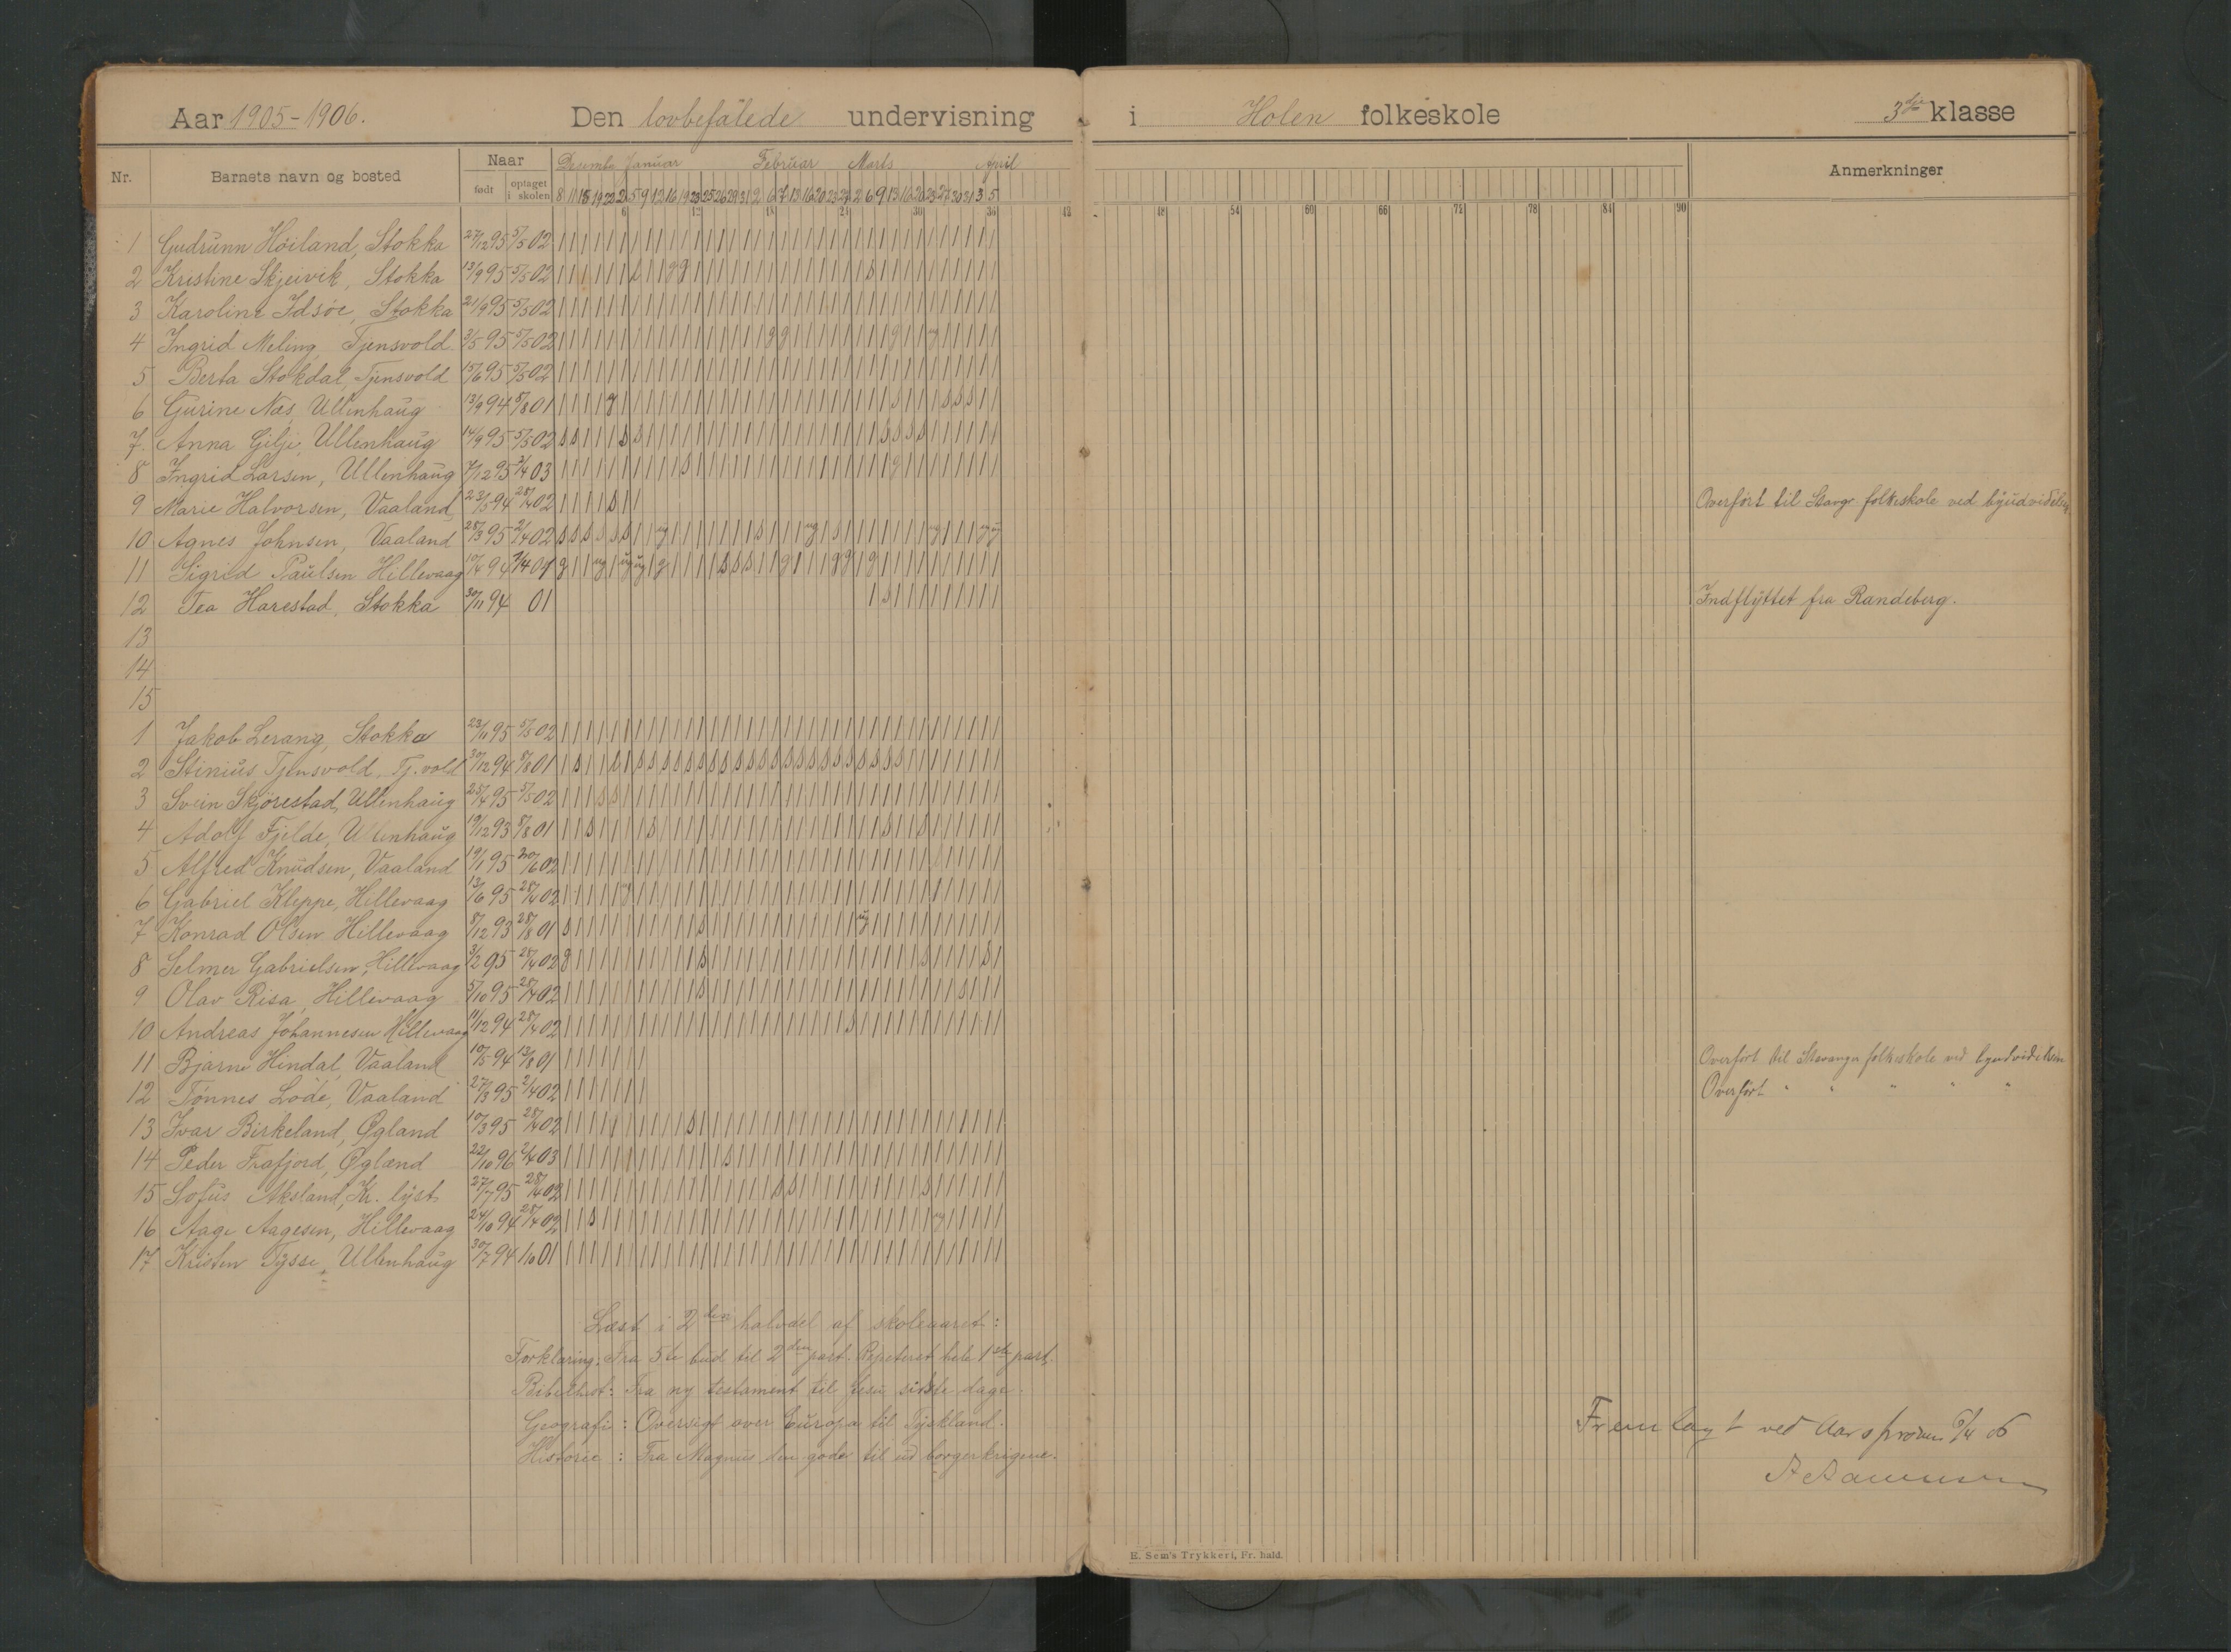 Aar 1905-1906. Den lovbefalede undervisning i Holen folkeskole 3die klasse
Nr. Barnets navn og bosted Naar Desembr Januar Februar Marts April Anmerkninger
født optaget i skolen
6 12 18 24 30 36 42 48 54 60 66 72 78 84 90
1 Gudrunn Höiland, Stokka 27/12 95 5/5 02
2 Kristine Skjeivik, Stokka 13/9 95 5/5 02
3 Karoline Idsöe, Stokka 21/9 95 5/5 02
4 Ingrid Meling Tjensvold 3/5 95 5/5 02
5 Berta Stokdal, Tjensvold 15/6 95 5/5 02
6 Gurine Næs Ullenhaug 13/9 94 5/8 01
7 Anna Gilje, Ullenhaug 14/9 95 5/5 02
8 Ingrid Larsen, Ullenhaug 7/12 95 2/4 03
9 Marie Halvorsen, Vaaland 23/5 94 28/4 02 Overført til Stavgr folkeskole ved byudvidelsen
10 Agnes Johnsen, Vaaland 28/3 95 2/4 02
11 Sigrid Paulsen Hillevaag
12 Tea Harestad, Stokka 30/11 94 01 Indflyttet fra Randeberg.
13
14
15
1 Jakob Lerang, Stokka 23/11 95 5/5 02
2 Stinius Tjensvold, Tj.vold 30/12 94 5/8 01
3 Svein Skjörestad, Ullenhaug 25/4 95 5/5 02
4 Adolf Fjelde, Ullenhaug 19/12 93 5/8 01
5 Alfred Knudsen, Vaaland 19/1 95 20/6 02
6 Gabriel Kleppe, Hillevaag 13/6 95 28/4 02
7 Konrad Olsen Hillevaag 8/12 93 28/8 01
8 Selmer Gabrielsen, Hillevaag 3/2 95 28/4 02
9 Olav Risa, Hillevaag 5/10 95 28/4 02
10 Andreas Johannesen Hillevaag 11/12 94 28/4 02
11 Bjarne Hindal, Vaaland 10/5 94 13/8 01 Overført til Stavanger folkeskole ved byudvidelsen
12 Tønnes Löde, Vaaland 27/3 95 2/4 02 Overført " " " " "
13 Ivar Birkeland, Øgland 10/3 95 28/4 02
14 Peder Frafjord, Øgland 22/10 96 2/4 03
15 Sofus Aksland, Kr. lyst 27/7 95 28/4 02
16 Aage Aagesen, Hillevaag 24/10 94 28/4 02
17 Kristen Tysse, Ullenhaug 30/7 94 1/10 01
Læst i 2den halvdel af skoleaaret:
Forklaring: Fra 5te bud til 2den part. Repeteret hele 1ste part.
Bibelhist: Fra ny testament til Jesu sidste dage.
Geografi: Oversigt over Europa til Tyskland.
Historie: Fra Magnus den gode til ud borgerkrigene.
Fremlagt ved Aarsprøven 6/4 06
E. Sem's Trykkeri, Fr. hald.